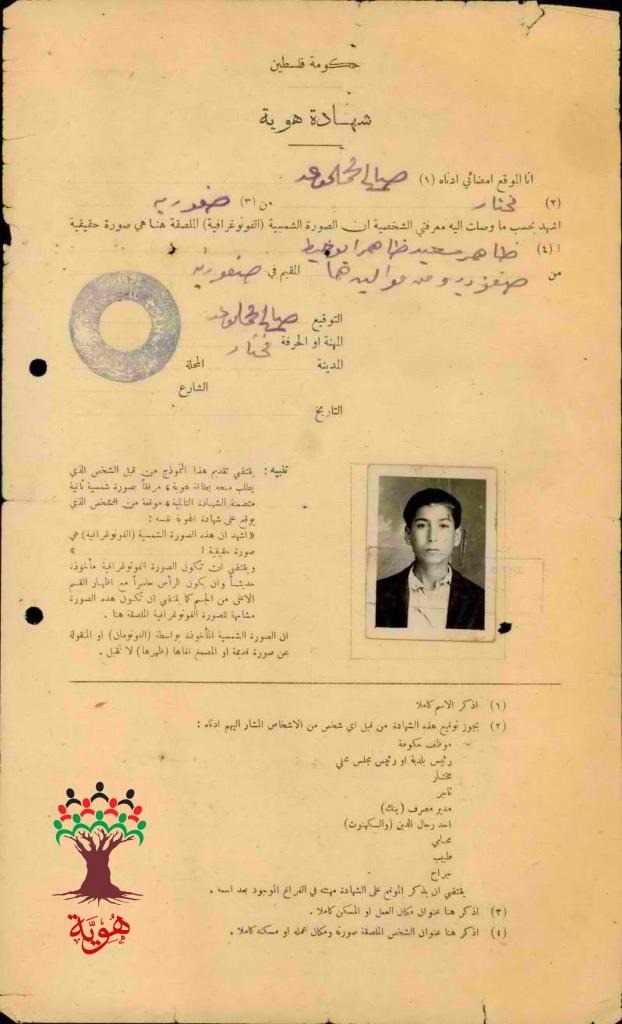 حكومة فلسطين
شهادة هوية
انا الموقع امضائي ادناه (١) صالح المحمد
(٢) مختار من (٣) صفوريه
اشهد بحسب ما وصلت اليه معرفتي الشخصية ان الصورة الشمسية (الفوتوغرافية) الملصقة هنا هي صورة حقيقية
(٤) ظاهر سعيد ظاهر
من صفوريه ومن مواليدها المقيم في صفوريه
التوقيع صالح المحمد
المهنة او الحرفة مختار
المدينة المحلة
الشارع
التاريخ
تنبيه : يقتضي تقديم هذا النموذج من قبل الشخص الذي
يطلب منحه بطاقة هوية ، مرفقاً بصورة شمسية ثانية
متضمنة الشهادة التالية ، موقعة من الشخص الذي
يوقع على شهادة الهوية نفسه :
« اشهد ان هذه الصورة الشمسية (الفوتوغرافية) هي
صورة حقيقية ا »
ويقتضي ان تكون الصورة الفوتوغرافية مأخوذة
حديثاً وان يكون الرأس حاسراً مع اظهار القسم
الاعلى من الجسم كما يقتضي ان تكون هذه الصورة
مشابهة للصورة الفوتوغرافية الملصقة هنا .
ان الصورة الشمسية المأخوذة بواسطة (الفوتومان) او المنقولة
عن صورة قديمة او المصمغ قفاها (ظهرها) لا تقبل .
(١) اذكر الاسم كاملا
(٢) يجوز توقيع هذه الشهادة من قبل اي شخص من الاشخاص المشار اليهم ادناه :
موظف حكومة
رئيس بلدية او رئيس مجلس محلي
مختار
تاجر
مدير مصرف (بنك)
احد رجال الدين (والكهنوت)
محامي
طبيب
جراح
يقتضي ان يذكر الموقع على الشهادة مهنته في الفراغ الموجود بعد اسمه .
(٣) اذكر هنا عنوان مكان العمل او المسكن كاملا .
(٤) اذكر هنا عنوان الشخص الملصقة صورته ومكان عمله او مسكنه كاملا .
هُويَّة